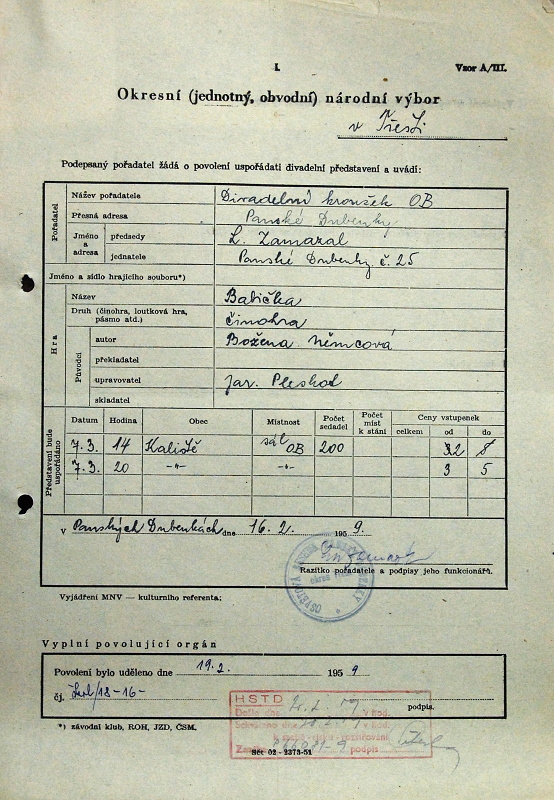 I.
Vzor A/III.
Okresní (jednotný, obvodní) národní výbor
v Třešti
Podepsaný pořadatel žádá o povolení uspořádati divadelní představení a uvádí:
Pořadatel
Název pořadatele Divadelní kroužek OB
Přesná adresa Panské Dubenky
Jméno a adresa
předsedy L. Zamazal
jednatele Panské Dubenky č. 25
Jméno a sídlo hrajícího souboru*)
Hra
Název Babička
Druh (činohra, loutková hra, pásmo atd.) činohra
Původci
autor Božena Němcová
překladatel
upravovatel Jar. Pleskot
skladatel
Představení bude uspořádáno
Datum Hodina Obec Místnost Počet sedadel Počet míst k stání Ceny vstupenek
celkem od do
7.3. 14 Kaliště sál OB 200
7.3. 20 -"- -"- 3 5
v Panských Dubenkách dne 16.2. 1959.
Razítko pořadatele a podpisy jeho funkcionářů.
OSVĚTOVÁ BESEDA
Vyjádření MNV — kulturního referenta:
Vyplní povolující orgán
Povolení bylo uděleno dne 19.2. 1959
čj. Škol/18-16-
podpis.
HSTD
Došlo dne v hod.
podpis
*) závodní klub, ROH, JZD, ČSM.
Sčt 02 - 2373-51